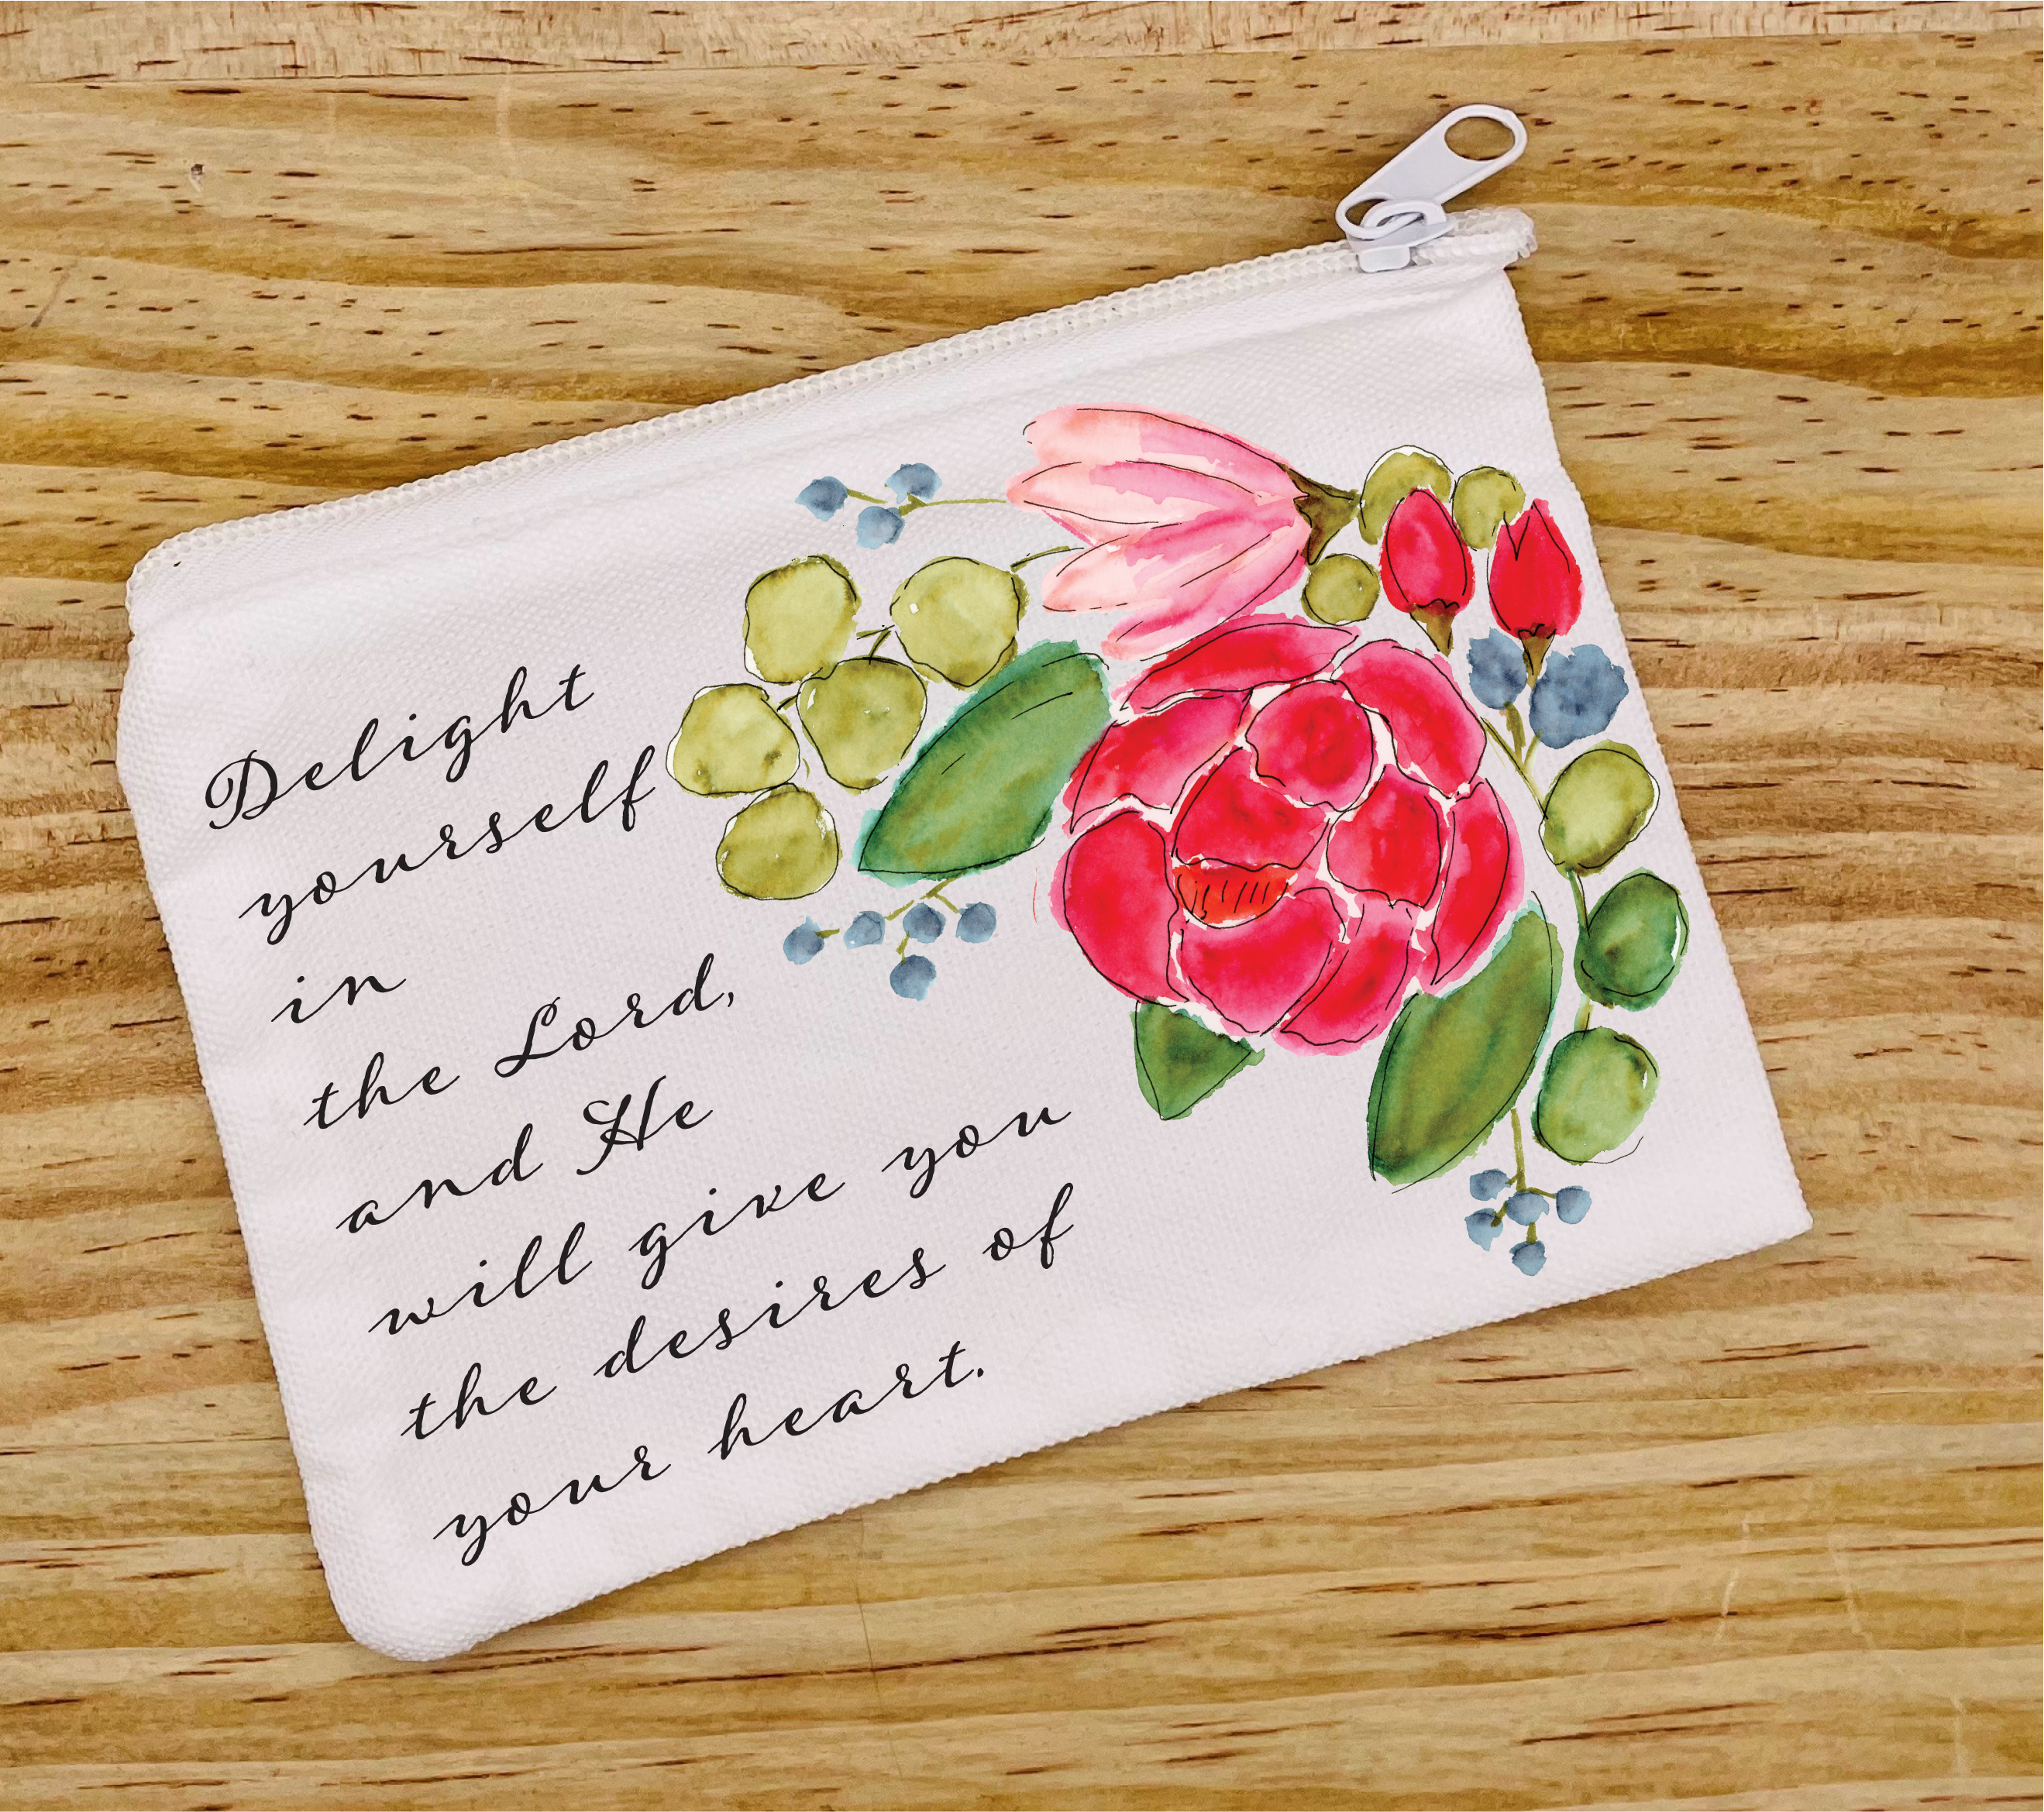 Delight
yourself
in
the Lord,
and He
will give you
the desires of
your heart.